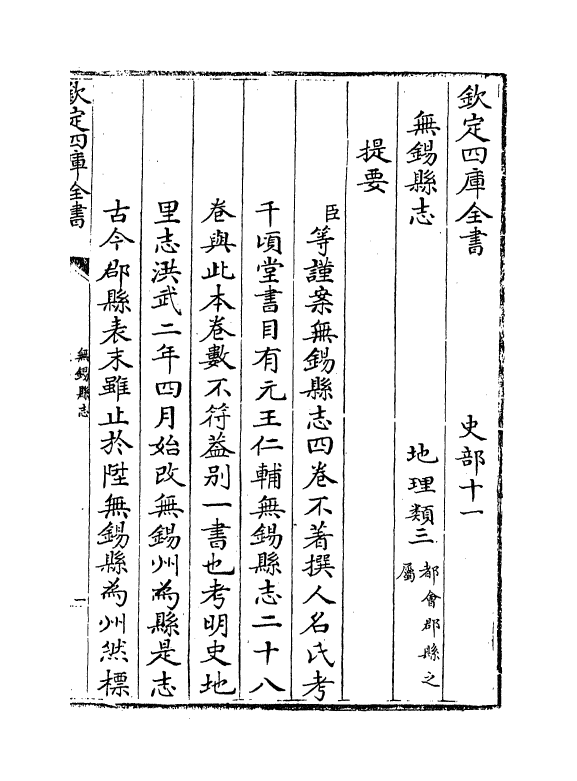 欽定四庫全書　史部十一
無錫縣志　地理類三都會郡縣之屬
提要
臣等謹案無錫縣志四卷不著撰人名氏考
千頃堂書目有元王仁輔無錫縣志二十八
卷與此本卷數不符葢别一書也考明史地
里志洪武二年四月始改無錫州為縣是志
古今郡縣表末雖止於陞無錫縣為州然標
欽定四庫全書
無錫縣志
一